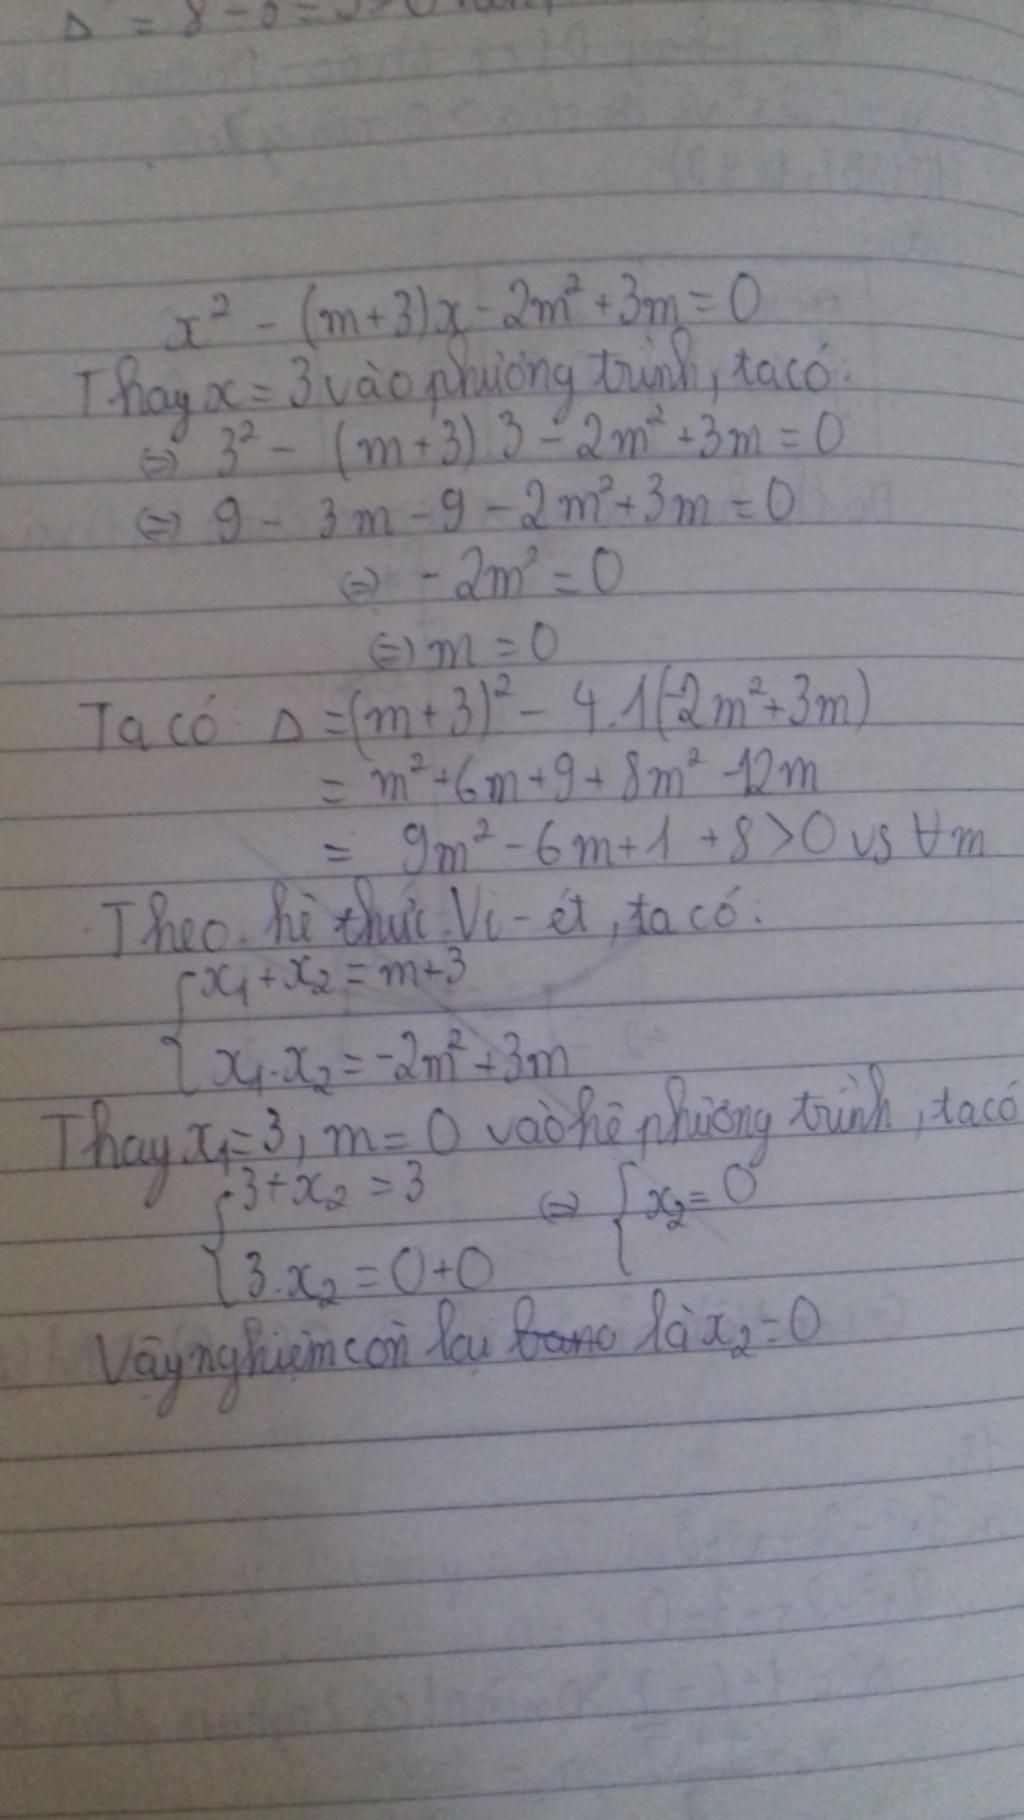 Δ = 8 - 8 =
x² - (m+3)x - 2m² + 3m = 0
Thay x = 3 vào phương trình, ta có:
⇔ 3² - (m+3) 3 - 2m² + 3m = 0
⇔ 9 - 3m - 9 - 2m² + 3m = 0
⇔ -2m² = 0
⇔ m = 0
Ta có Δ = (m+3)² - 4.1(-2m² + 3m)
= m² + 6m + 9 + 8m² - 12m
= 9m² - 6m + 1 + 8 > 0 vs ∀m
Theo hệ thức Vi-ét, ta có:
{ x₁ + x₂ = m+3
x₁.x₂ = -2m² + 3m
Thay x₁ = 3, m = 0 vào hệ phương trình, ta có
{ 3 + x₂ = 3 ⇔ { x₂ = 0
3.x₂ = 0+0
Vậy nghiệm còn lại là x₂ = 0